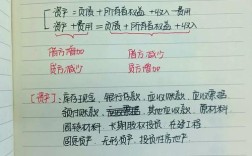 资产 = 负债 + 所有者权益 + 收入 - 费用
资产 + 费用 = 负债 + 所有者权益 + 收入
借方增加 借方减少
贷方减少 贷方增加
[资产]: 库存现金、银行存款、应收账款、应收票据
预付账款、其他应收款、原材料
周转材料、长期股权投资、在建工程
固定资产、无形资产、投资性房地产